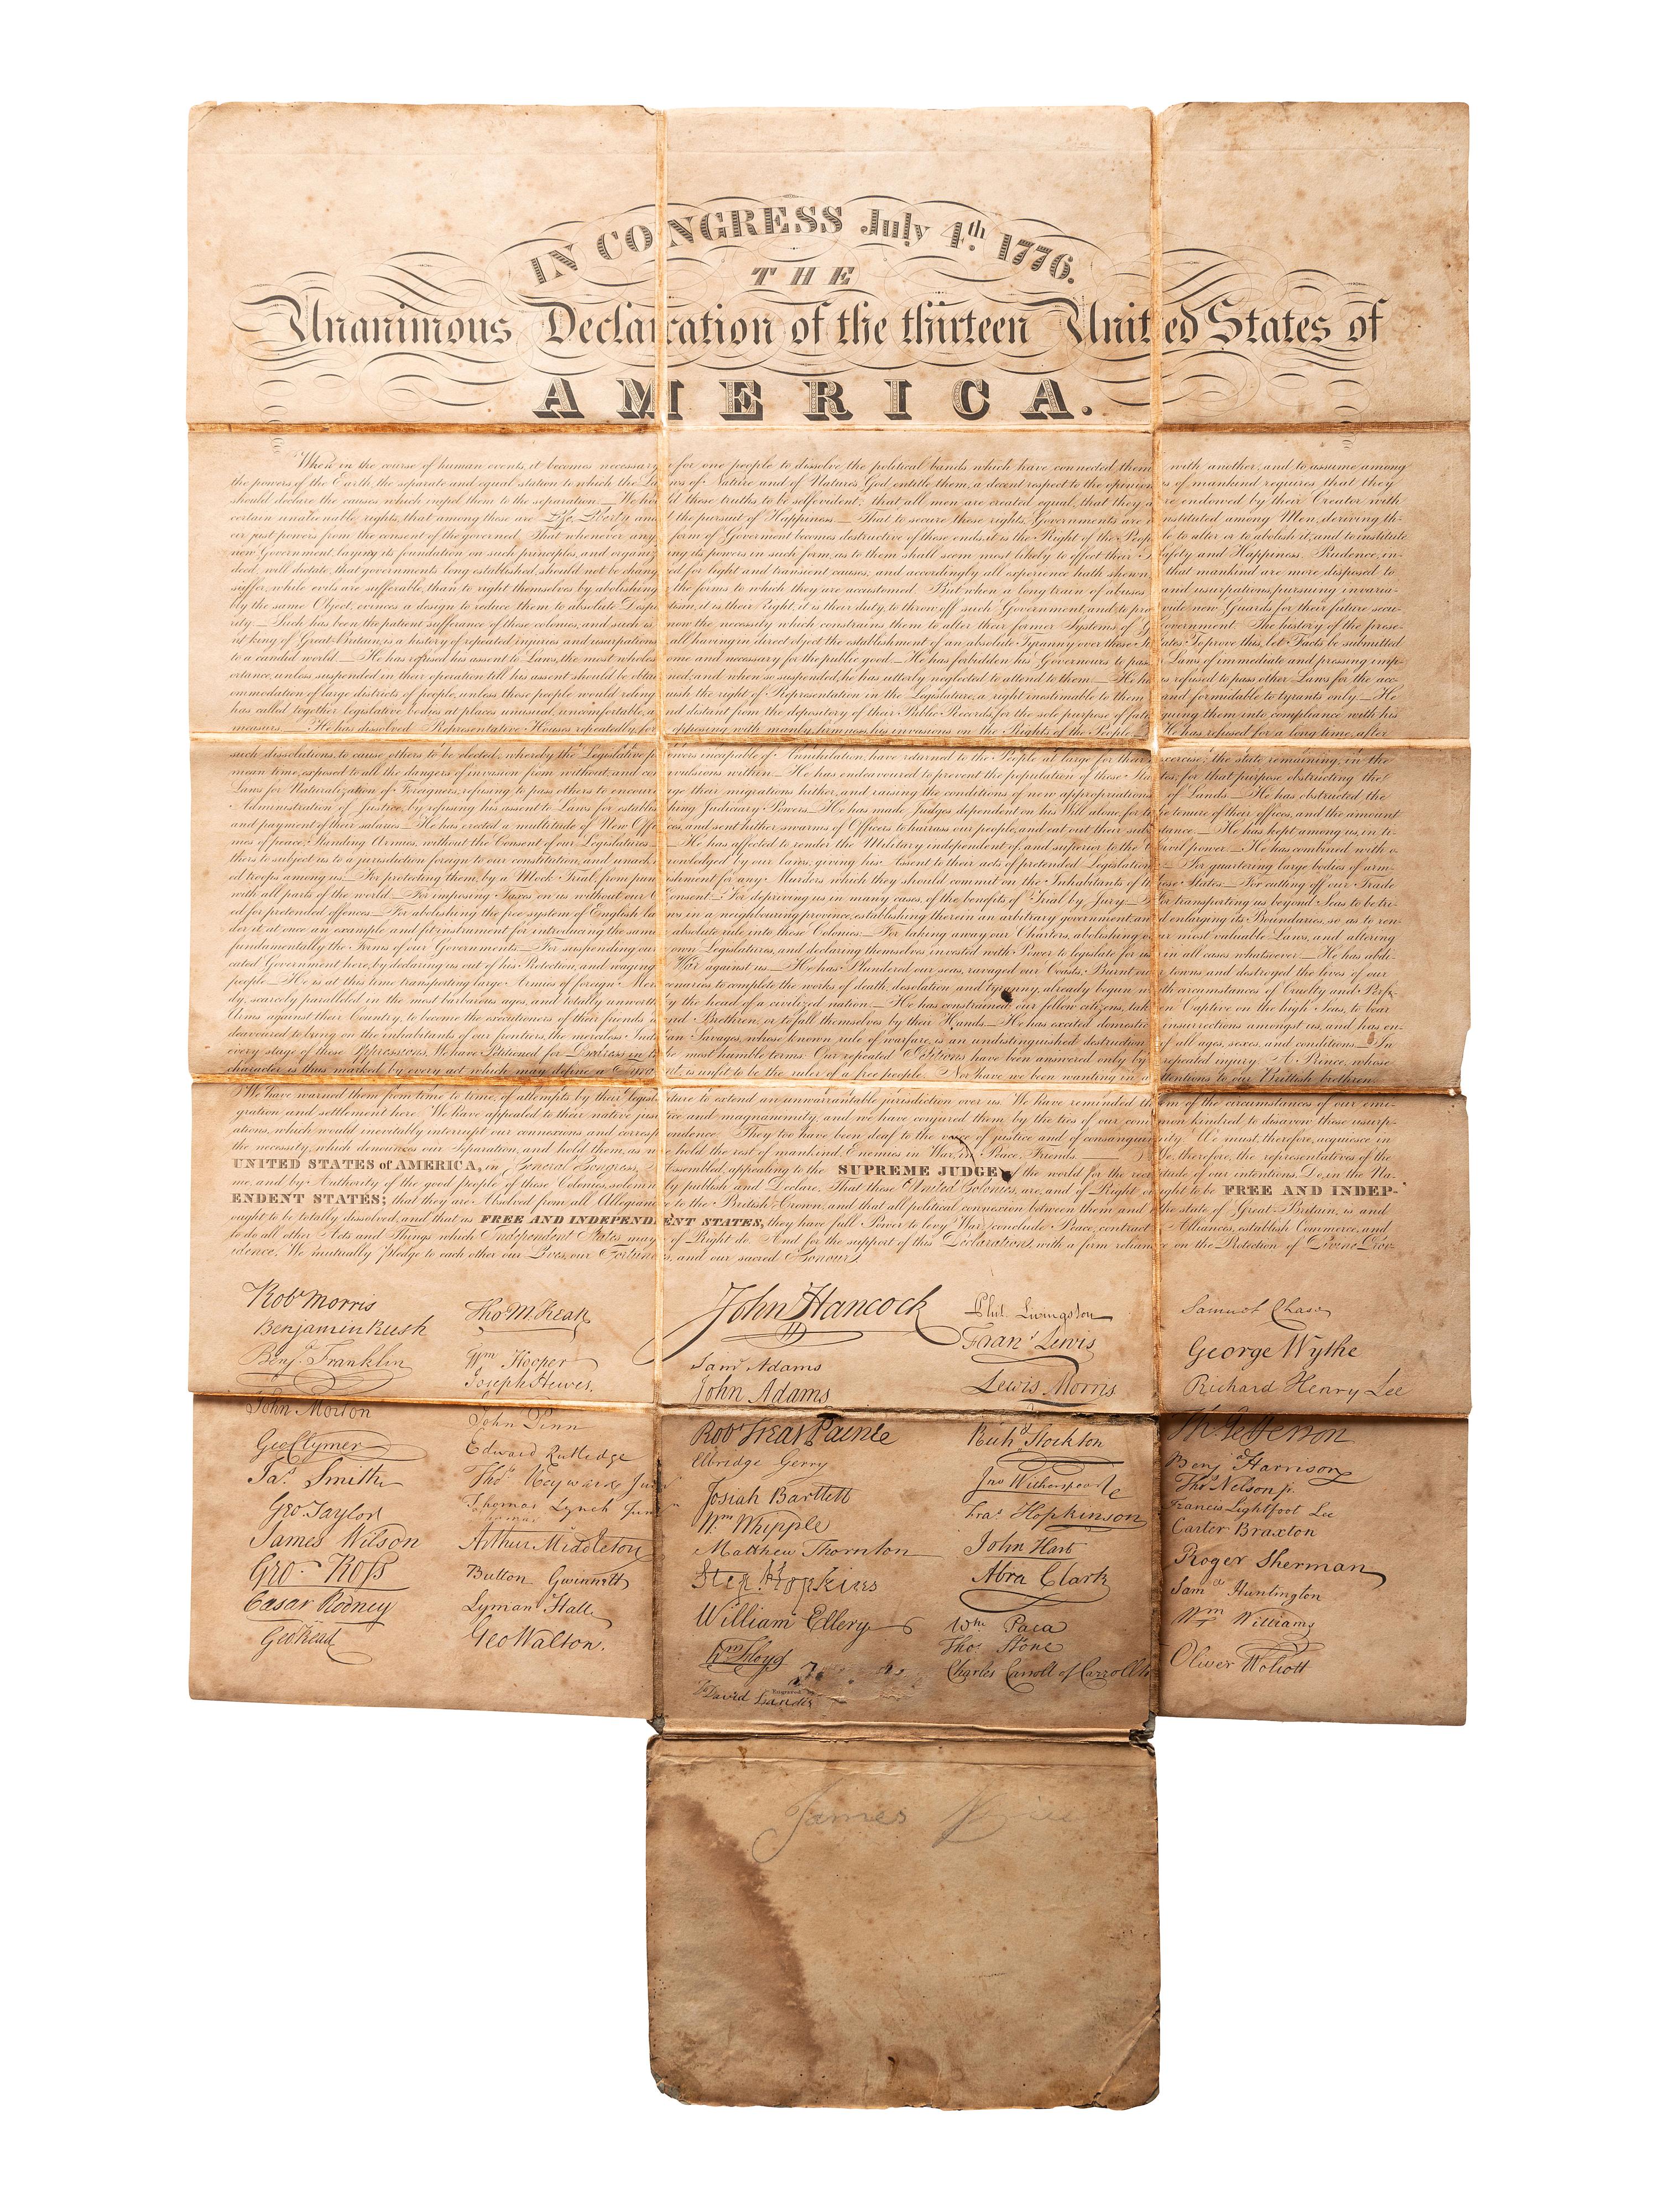 IN CONGRESS July 4th. 1776.
THE
Unanimous Declaration of the thirteen United States of
AMERICA.
When in the course of human events, it becomes necessary for one people to dissolve the political bands which have connected them with another, and to assume among
the powers of the Earth, the separate and equal station to which the Laws of Nature and of Natures God entitle them, a decent respect to the opinions of mankind requires that they
should declare the causes which impel them to the separation.—We hold these truths to be selfevident; that all men are created equal, that they are endowed by their Creator with
certain unalienable rights, that among these are Life, Liberty and the pursuit of Happiness— That to secure these rights, Governments are instituted among Men, deriving th-
er just powers from the consent of the governed. That whenever any form of Goverment becomes destructive of these ends, it is the Right of the People to alter or to abolish it, and to institute
new Government, laying its foundation on such principles, and organizing its powers in such form, as to them shall seem most likely to effect their Safety and Happiness. Prudence, in-
deed, will dictate, that governments long established, should not be changed for light and transient causes; and accordingly all experience hath shown, that mankind are more disposed to
suffer, while evils are sufferable, than to right themselves by abolishing the forms to which they are accustomed. But when a long train of abuses and usurpations, pursuing invaria-
bly the same Object, evinces a design to reduce them to absolute Despotism, it is their Right, it is their duty, to throw off such Government, and to provide new Guards for their future secu-
rity.— Such has been the patient sufferance of these colonies, and such is now the necessity which constrains them to alter their former Systems of Government. The history of the prese-
nt king of Great-Britain, is a history of repeated injuries and usurpations, all having in direct object the establishment of an absolute Tyranny over these States To prove this, let Facts be submitted
to a candid world.— He has refused his assent to Laws, the most wholesome and necessary for the public good.—He has forbidden his Governours to pass Laws of immediate and pressing imp-
ortance, unless suspended in their operation till his assent should be obtained; and when so suspended, he has utterly neglected to attend to them.— He has refused to pass other Laws for the acc-
ommodation of large districts of people, unless those people would relinquish the right of Representation in the Legislature, a right inestimable to them and formidable to tyrants only—He
has called together legislative bodies at places unusual, uncomfortable, and distant from the depository of their Public Records, for the sole purpose of fatiguing them into compliance with his
measurs.— He has dissolved Representative Houses repeatedly, for opposing with manly firmness, his invasions on the Rights of the People. He has refused for a long time, after
such dissolutions, to cause others to be elected; whereby the Legislative powers incapable of Annihilation, have returned to the People at large for their exercise; the state remaining, in the
mean time, exposed to all the dangers of invasion from without, and convulsions within.—He has endeavoured to prevent the population of these States; for that purpose obstructing the
Laws for Naturalization of Foreigners, refusing to pass others to encourage their migrations hither, and raising the conditions of new appropriations of Lands.—He has obstructed the
Administration of Justice, by refusing his assent to Laws for establishing Judiciary Powers.—He has made Judges dependent on his Will alone, for the tenure of their offices, and the amount
and payment of their salaries.—He has erected a multitude of New Offices, and sent hither swarms of Officers to harrass our people, and eat out their substance.—He has kept among us, in ti-
mes of peace, Standing Armies, without the Consent of our Legislatures.—He has affected to render the Military independent of, and superior to the Civil power.—He has combined with o-
thers to subject us to a jurisdiction foreign to our constitution, and unacknowledged by our laws, giving his Assent to their acts of pretended Legislation:—For quartering large bodies of arm-
ed troops among us:—For protecting them, by a Mock Trial, from punishment for any Murders which they should commit on the Inhabitants of these States.—For cutting off our Trade
with all parts of the world.—For imposing Taxes on us without our Consent.—For depriving us in many cases, of the benefits of Trial by Jury.—For transporting us beyond Seas to be tri-
ed for pretended offences.—For abolishing the free system of English laws in a neighbouring province, establishing therein an arbitrary government, and enlarging its Boundaries, so as to ren-
der it at once an example and fit instrument for introducing the same absolute rule into these Colonies:—For taking away our Charters, abolishing our most valuable Laws, and altering
fundamentally the Forms of our Governments.—For suspending our own Legislatures, and declaring themselves invested with Power to legislate for us in all cases whatsoever.—He has abdi-
cated Government here, by declaring us out of his Protection, and waging War against us.—He has Plundered our seas, ravaged our Coasts, Burnt our towns and destroyed the lives of our
people.—He is at this time transporting large Armies of foreign Mercenaries to complete the works of death, desolation and tyranny, already begun with circumstances of Cruelty and Perfi-
dy, scarcely paralleled in the most barbarous ages, and totally unworthy the head of a civilized nation.—He has constrained our fellow citizens, taken Captive on the high Seas, to bear
Arms against their Country, to become the executioners of their friends and Brethren, or to fall themselves by their Hands—He has excited domestic insurrections amongst us, and has en-
deavoured to bring on the inhabitants of our frontiers, the merciless Indian Savages, whose known rule of warfare, is an undistinguished destruction of all ages, sexes, and conditions.—In
every stage of these Oppressions, We have Petitioned for Dedress in the most humble terms: Our repeated Petitions have been answered only by repeated injury. A Prince, whose
character is thus marked by every act which may define a Tyrant, is unfit to be the ruler of a free people. Nor have we been wanting in attentions to our Brittish brethren.
We have warned them from time to time, of attempts by their legislature to extend an unwarrantable jurisdiction over us. We have reminded them of the circumstances of our emi-
gration and settlement here. We have appealed to their native justice and magnanimity, and we have conjured them by the ties of our common kindred to disavow these usurp-
ations, which would inevitably interrupt our connexions and correspondence. They too have been deaf to the voice of justice and of consanguinity. We must, therefore, acquiesce in
the necessity, which denounces our Separation, and hold them, as we hold the rest of mankind, Enemies in War, in Peace, Friends.— We, therefore, the representatives of the
UNITED STATES of AMERICA, in General Congress, Assembled, appealing to the SUPREME JUDGE of the world for the rectitude of our intentions, Do, in the Na-
me, and by Authority of the good people of these Colonies, solemnly publish and Declare, That these United Colonies, are, and of Right ought to be FREE AND INDEP-
ENDENT STATES; that they are Absolved from all Allegiance to the British Crown, and that all political connexion between them and the state of Great-Britain, is and
ought to be totally dissolved; and that as FREE AND INDEPENDENT STATES, they have full Power to levy War, conclude Peace, contract Alliances, establish Commerce, and
to do all other Acts and Things which Independent States may of Right do. And for the support of this Declaration, with a firm reliance on the Protection of Divine Prov-
idence, We mutually Pledge to each other our Lives, our Fortunes, and our sacred Honour.
Robt Morris
Benjamin Rush
Benja. Franklin
John Morton
Geo Clymer
Jas. Smith
Geo. Taylor
James Wilson
Geo. Ross
Caesar Rodney
Geo Read
Tho M. Kean
Wm Hooper
Joseph Hewes,
John Penn
Edward Rutledge
Thos. Heyward Junr
Thomas Lynch Junr
Arthur Middleton
Button Gwinnett
Lyman Hall
Geo Walton.
John Hancock
Saml Adams
John Adams
Robt Treat Paine
Elbridge Gerry
Josiah Bartlett
Wm Whipple
Matthew Thornton
Step. Hopkins
William Ellery
Wm Floyd
David Landis
Engraved
Phil. Livingston
Frans. Lewis
Lewis Morris
Richd. Stockton
Jno Witherspoon
Fras. Hopkinson
John Hart
Abra Clark
Wm Paca
Thos. Stone
Charles Carroll of Carrollton
Samuel Chase
George Wythe
Richard Henry Lee
Th. Jefferson
Benj Harrison
Thos Nelson jr.
Francis Lightfoot Lee
Carter Braxton
Roger Sherman
Saml Huntington
Wm Williams
Oliver Wolcott
James